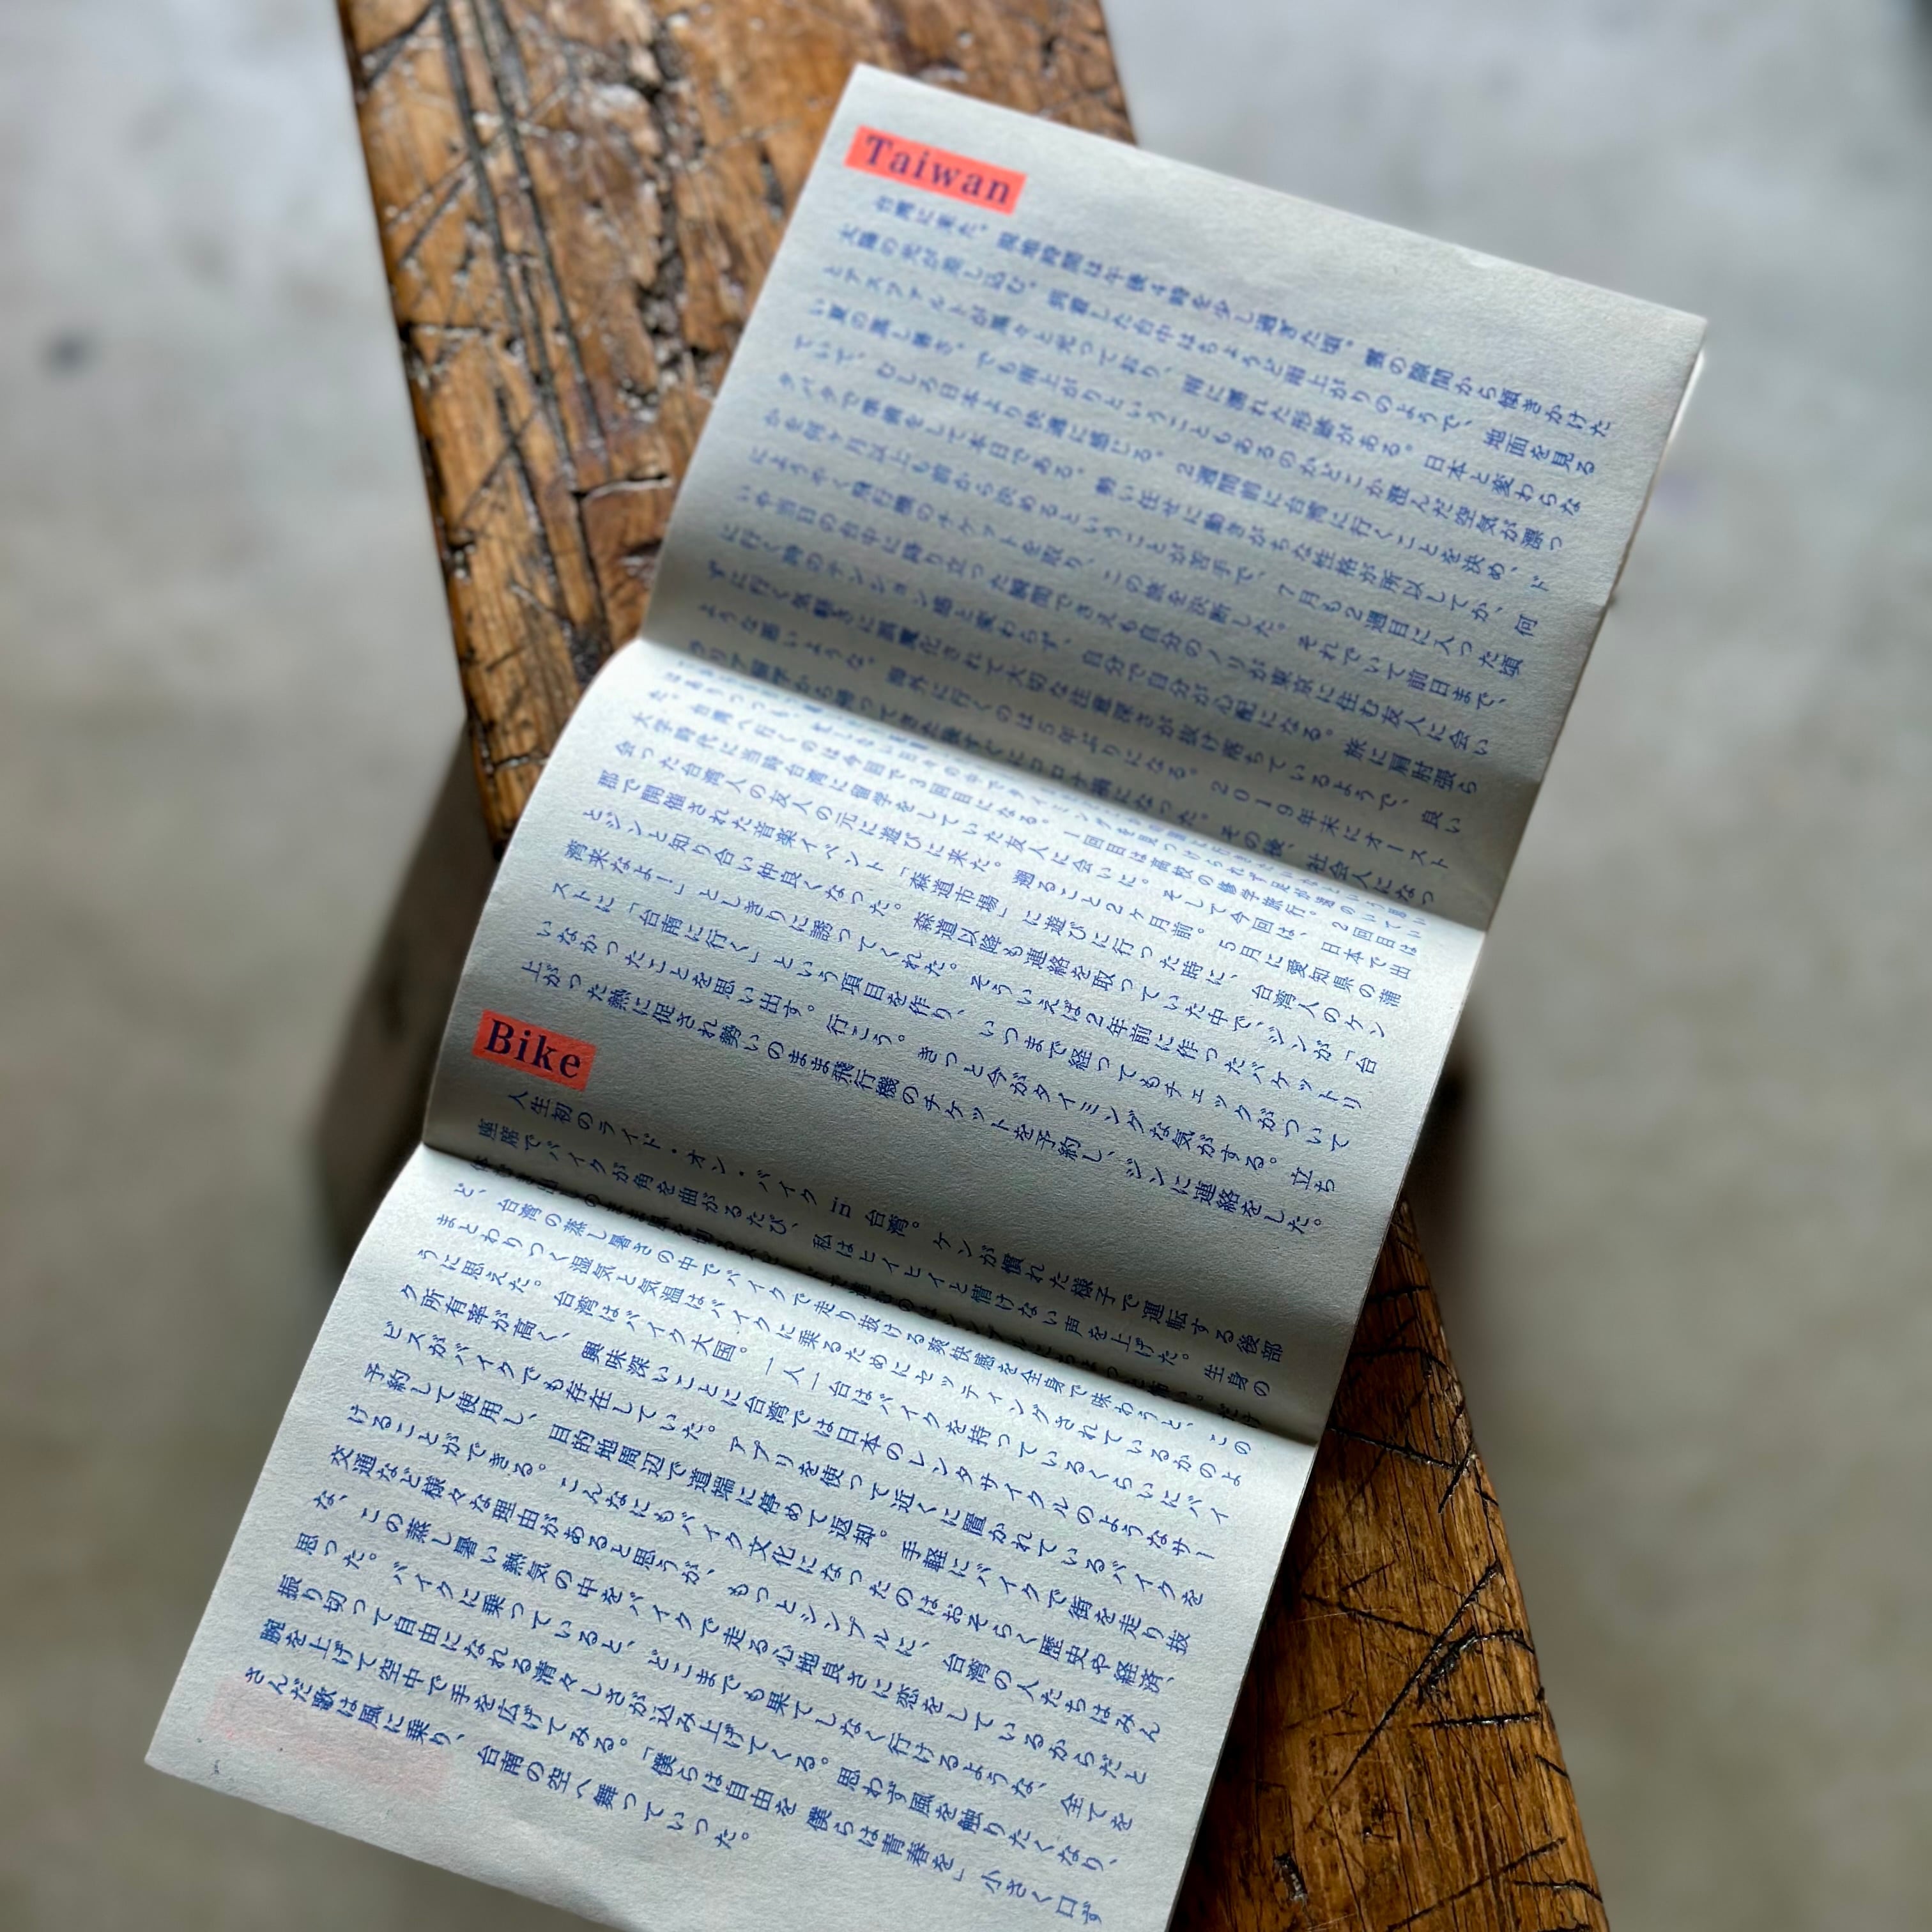 Taiwan
台湾に来た。現地時間は午後4時を少し過ぎた頃。雲の隙間から傾きかけた
太陽の光が差し込む。到着した台中はちょうど雨上がりのようで、地面を見る
とアスファルトが黒々と光っており、雨に濡れた形跡がある。日本と変わらな
い夏の蒸し暑さ。でも雨上がりということもあるのかどこか澄んだ空気が漂っ
ていて、むしろ日本より快適に感じる。2週間前に台湾に行くことを決め、ド
タバタで準備をして本日である。勢い任せに動きがちな性格が所以してか、何
かを何ヶ月以上も前から決めるということが苦手で、7月も2週目に入った頃
にようやく飛行機のチケットを取り、この旅を決断した。それでいて前日まで、
いや当日の台中に降り立った瞬間でさえも自分のノリが東京に住む友人に会い
に行く時のテンション感と変わらず、自分で自分が心配になる。旅に肩肘張ら
ずに行く気軽さに異電化されて大切な注意深さが抜け落ちているようで、良い
ような悪いような。海外に行くのは5年ぶりになる。2019年末にオースト
ラリア留学から帰ってきた後すぐにコロナ禍になった。その後、社会人になっ
た。台湾へ行くのは今回で3回目になる。1回目は高校の修学旅行。2回目は
大学時代に当時台湾に留学をしていた友人に会いに。そして今回は、日本で出
会った台湾人の友人の元に遊びに来た。遡ること2ヶ月前。5月に愛知県の蒲
郡で開催された音楽イベント「森道市場」に遊びに行った時に、台湾人のケン
とジンと知り合い仲良くなった。森道以降も連絡を取っていた中で、ジンが「台
湾来なよー」としきりに誘ってくれた。そういえば2年前に作ったバケットリ
ストに「台南に行く」という項目を作り、いつまで経ってもチェックがついて
いなかったことを思い出す。行こう。きっと今がタイミングな気がする。立ち
上がった熱に促され勢いのまま飛行機のチケットを予約し、ジンに連絡をした。
Bike
人生初のライド・オン・バイク in 台湾。ケンが慣れた様子で運転する後部
座席でバイクが角を曲がるたび、私はヒイヒイと情けない声を上げた。生身の
ど、台湾の蒸し暑さの中でバイクで走り抜ける爽快感を全身で味わうと、この
まとわりつく湿気と気温はバイクに乗るためにセッティングされているかのよ
うに思えた。台湾はバイク大国。一人一台はバイクを持っているくらいにバイ
ク所有率が高く、興味深いことに台湾では日本のレンタサイクルのようなサー
ビスがバイクでも存在していた。アプリを使って近くに置かれているバイクを
予約して使用し、目的地周辺で道端に停めて返却。手軽にバイクで街を走り抜
けることができる。こんなにもバイク文化になったのはおそらく歴史や経済、
交通など様々な理由があると思うが、もっとシンプルに、台湾の人たちはみん
な、この蒸し暑い熱気の中をバイクで走る心地良さに恋をしているからだと
思った。バイクに乗っていると、どこまでも果てしなく行けるような、全てを
振り切って自由になれる清々しさが込み上げてくる。思わず風を触りたくなり、
腕を上げて空中で手を広げてみる。「僕らは自由を 僕らは青春を」小さく口ず
さんだ歌は風に乗り、台南の空へ舞っていった。